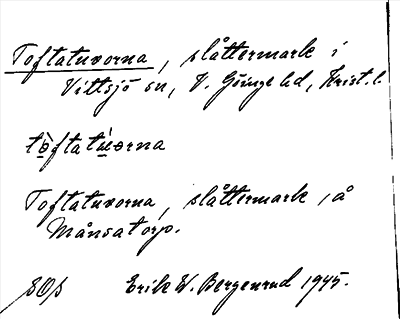 Toftatuvorna, slåttermark i
Vittsjö sn, V. Göinge hd, Krist. l.
tòftatúvorna
Toftatuvorna, slåttermark, å
Månsatorp.
Erik W. Bergenrud 1945.